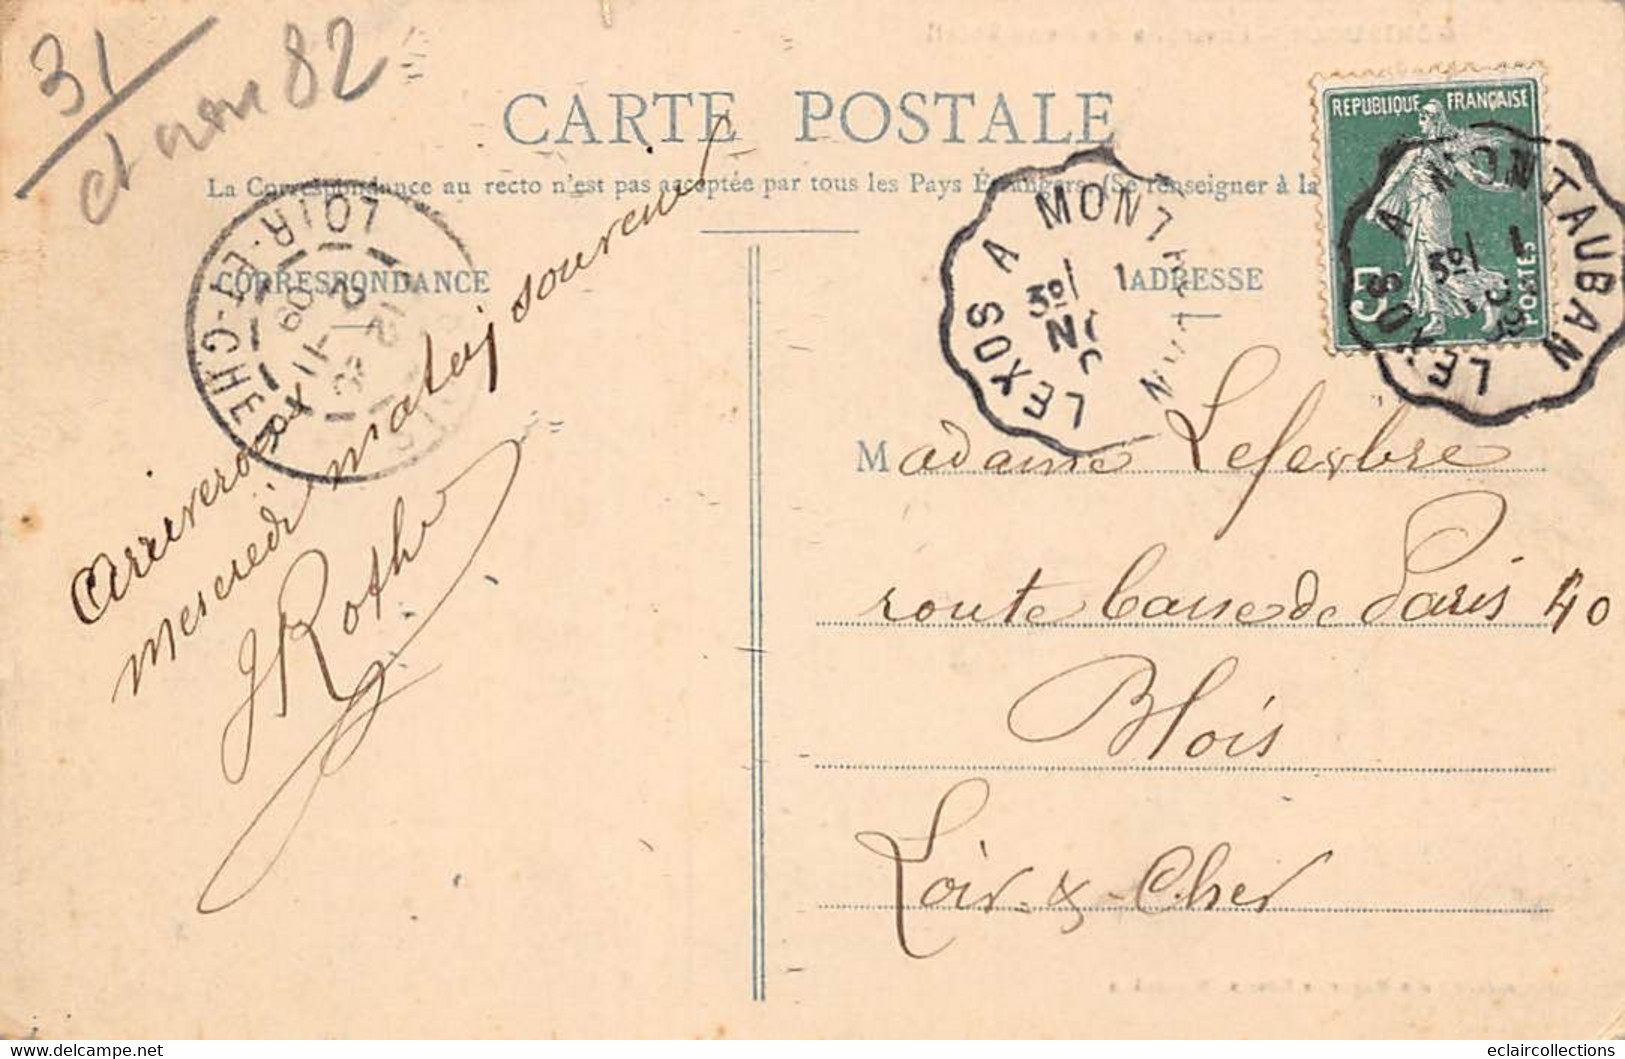 31
82
CARTE POSTALE
La Correspondance au recto n'est pas acceptée par tous les Pays Étrangers. (Se renseigner à la
RÉPUBLIQUE FRANÇAISE
5
POSTES
LEXOS A MONTAUBAN
LEXOS A MONTAUBAN
LOIR-ET-CHER
CORRESPONDANCE
ADRESSE
Arriverox
mercredi matin souvenir
JRothe
Madame Lefevbre
route basse de Paris 40
Blois
Loir-&-Cher
eclaircollections.com